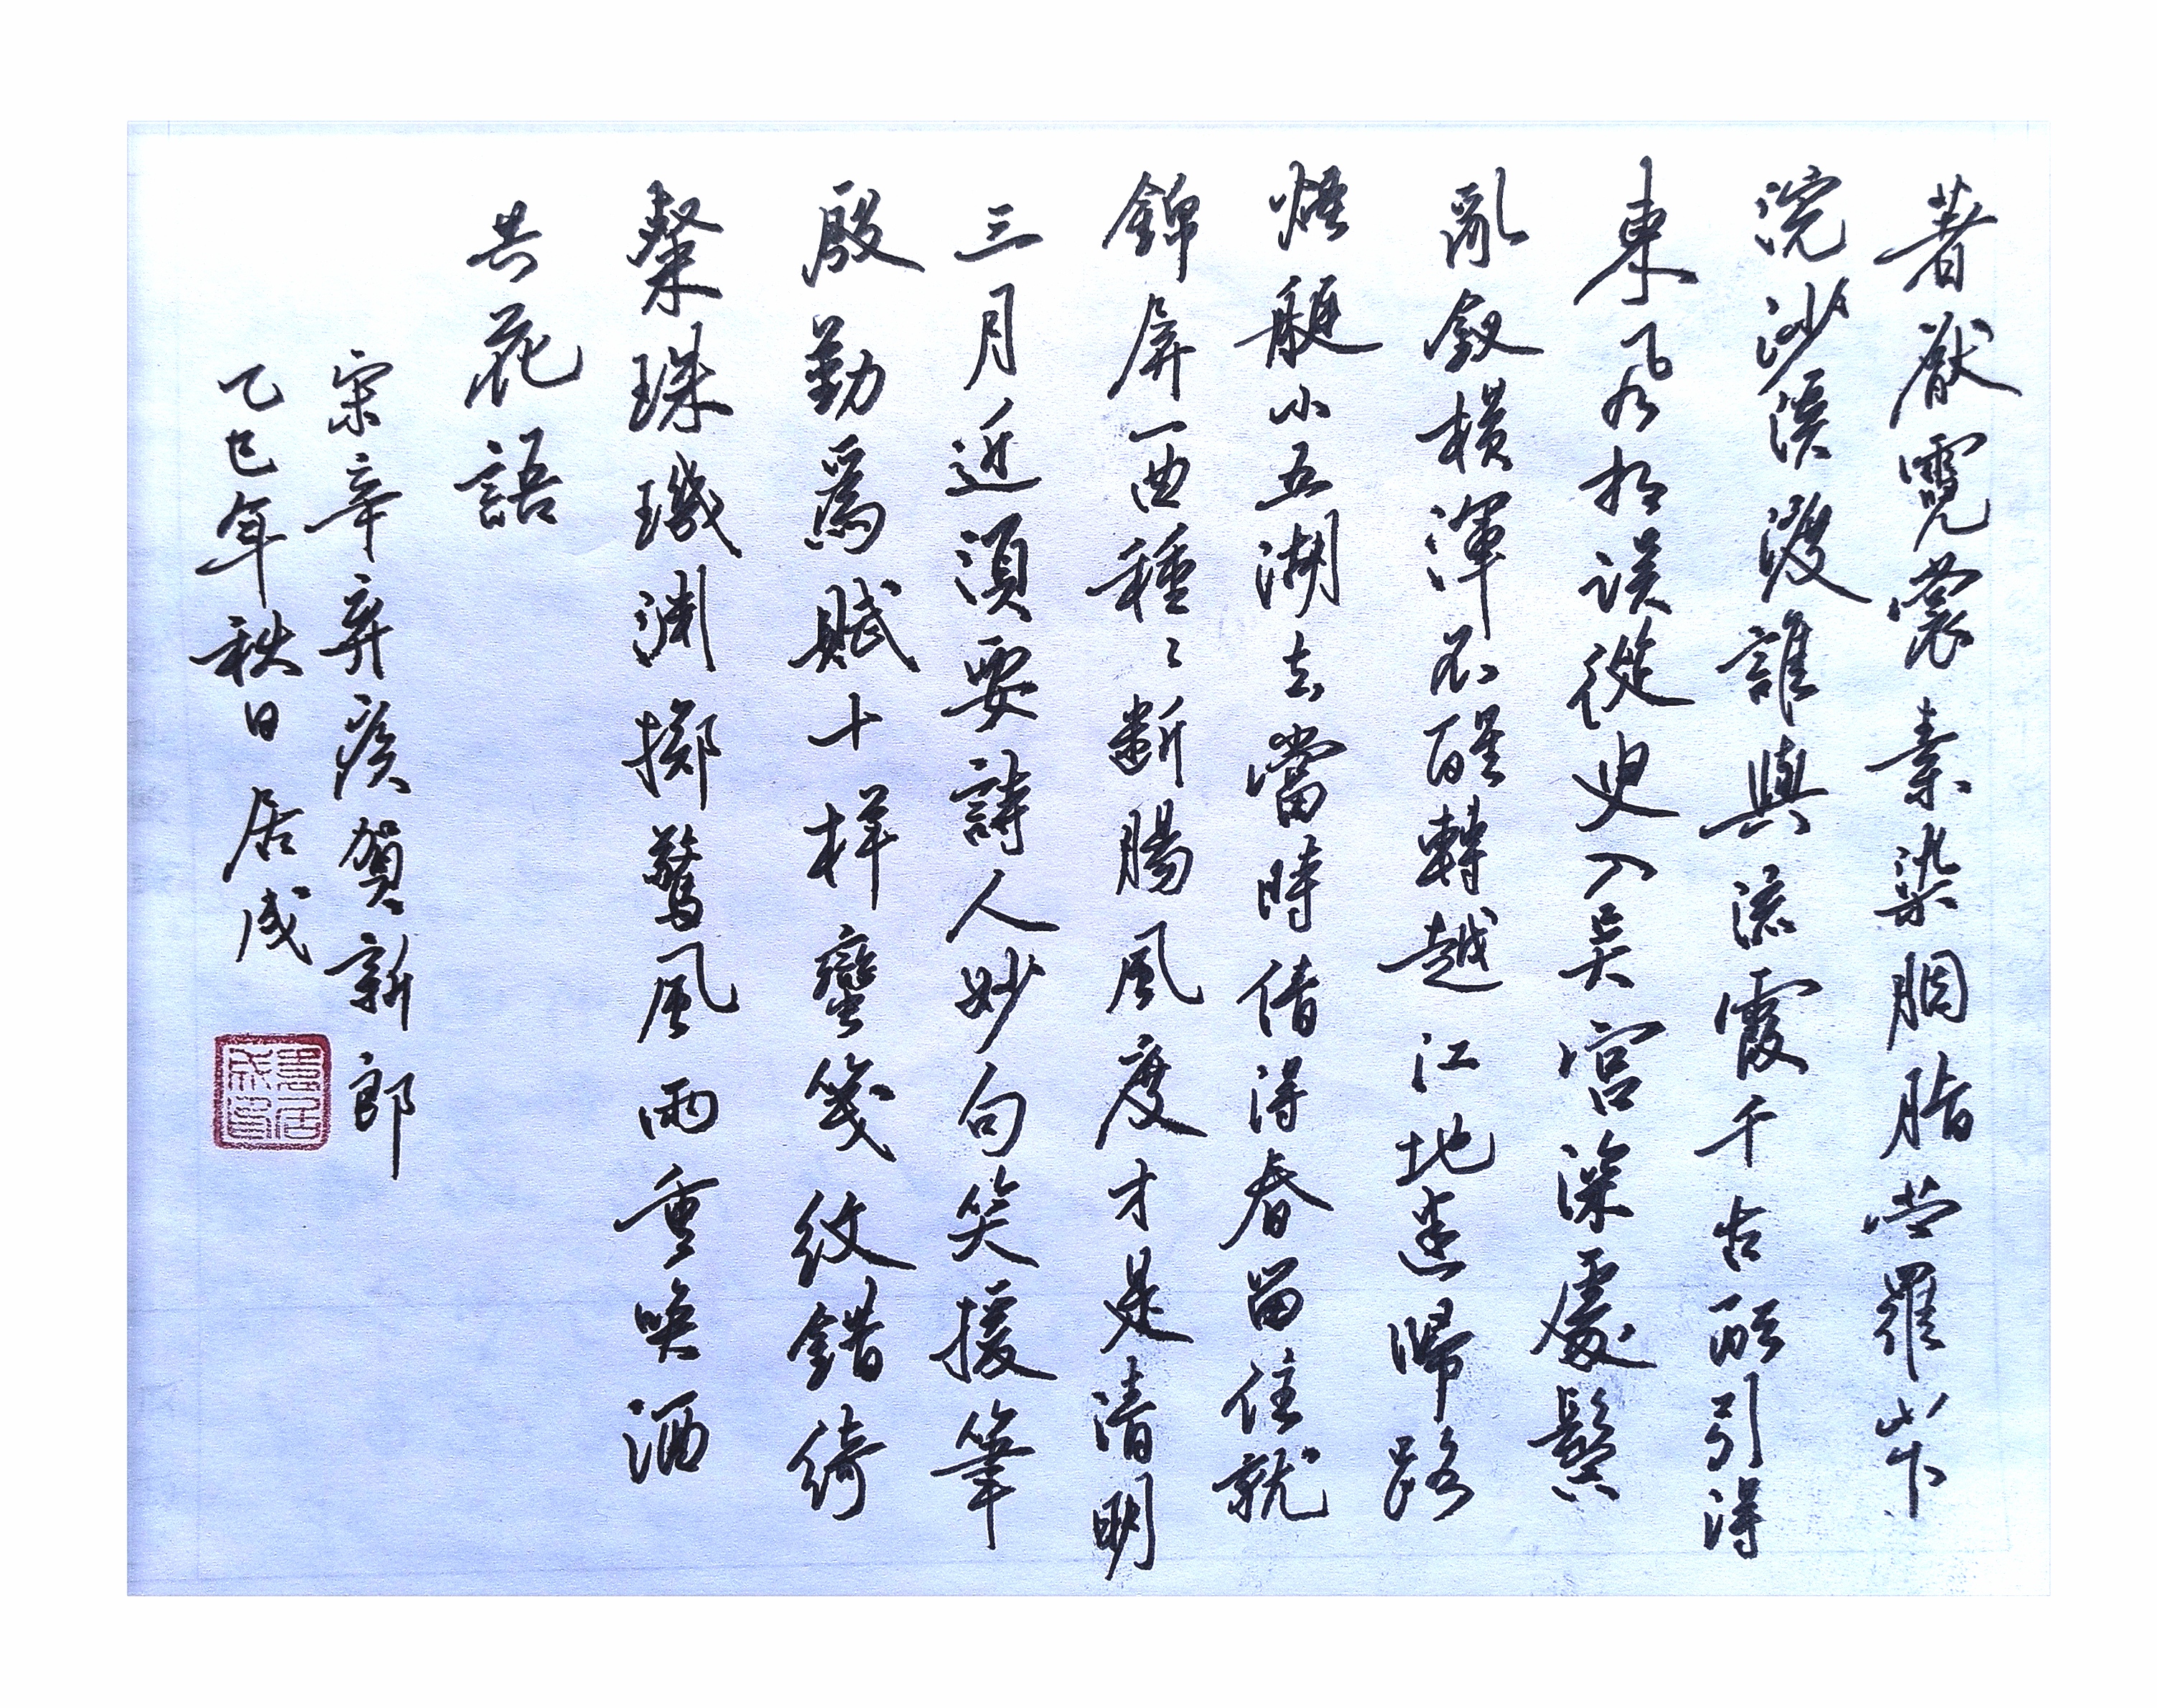 著厭霓裳素染胭脂苎羅山下
浣沙溪渡誰與流霞千古酝引得
東風相誤從臾入吳宮深處鬢
亂釵橫渾不醒轉越江地迷歸路
煙艇小五湖去當時倩得春留住就
錦屏一曲種〻斷腸風度才是清明
三月近須要詩人妙句笑援筆
殷勤爲賦十样蠻箋紋錯綺
粲珠璣淵擲驚風雨重喚酒
共花語
宋辛弃疾賀新郎
乙巳年秋日居成